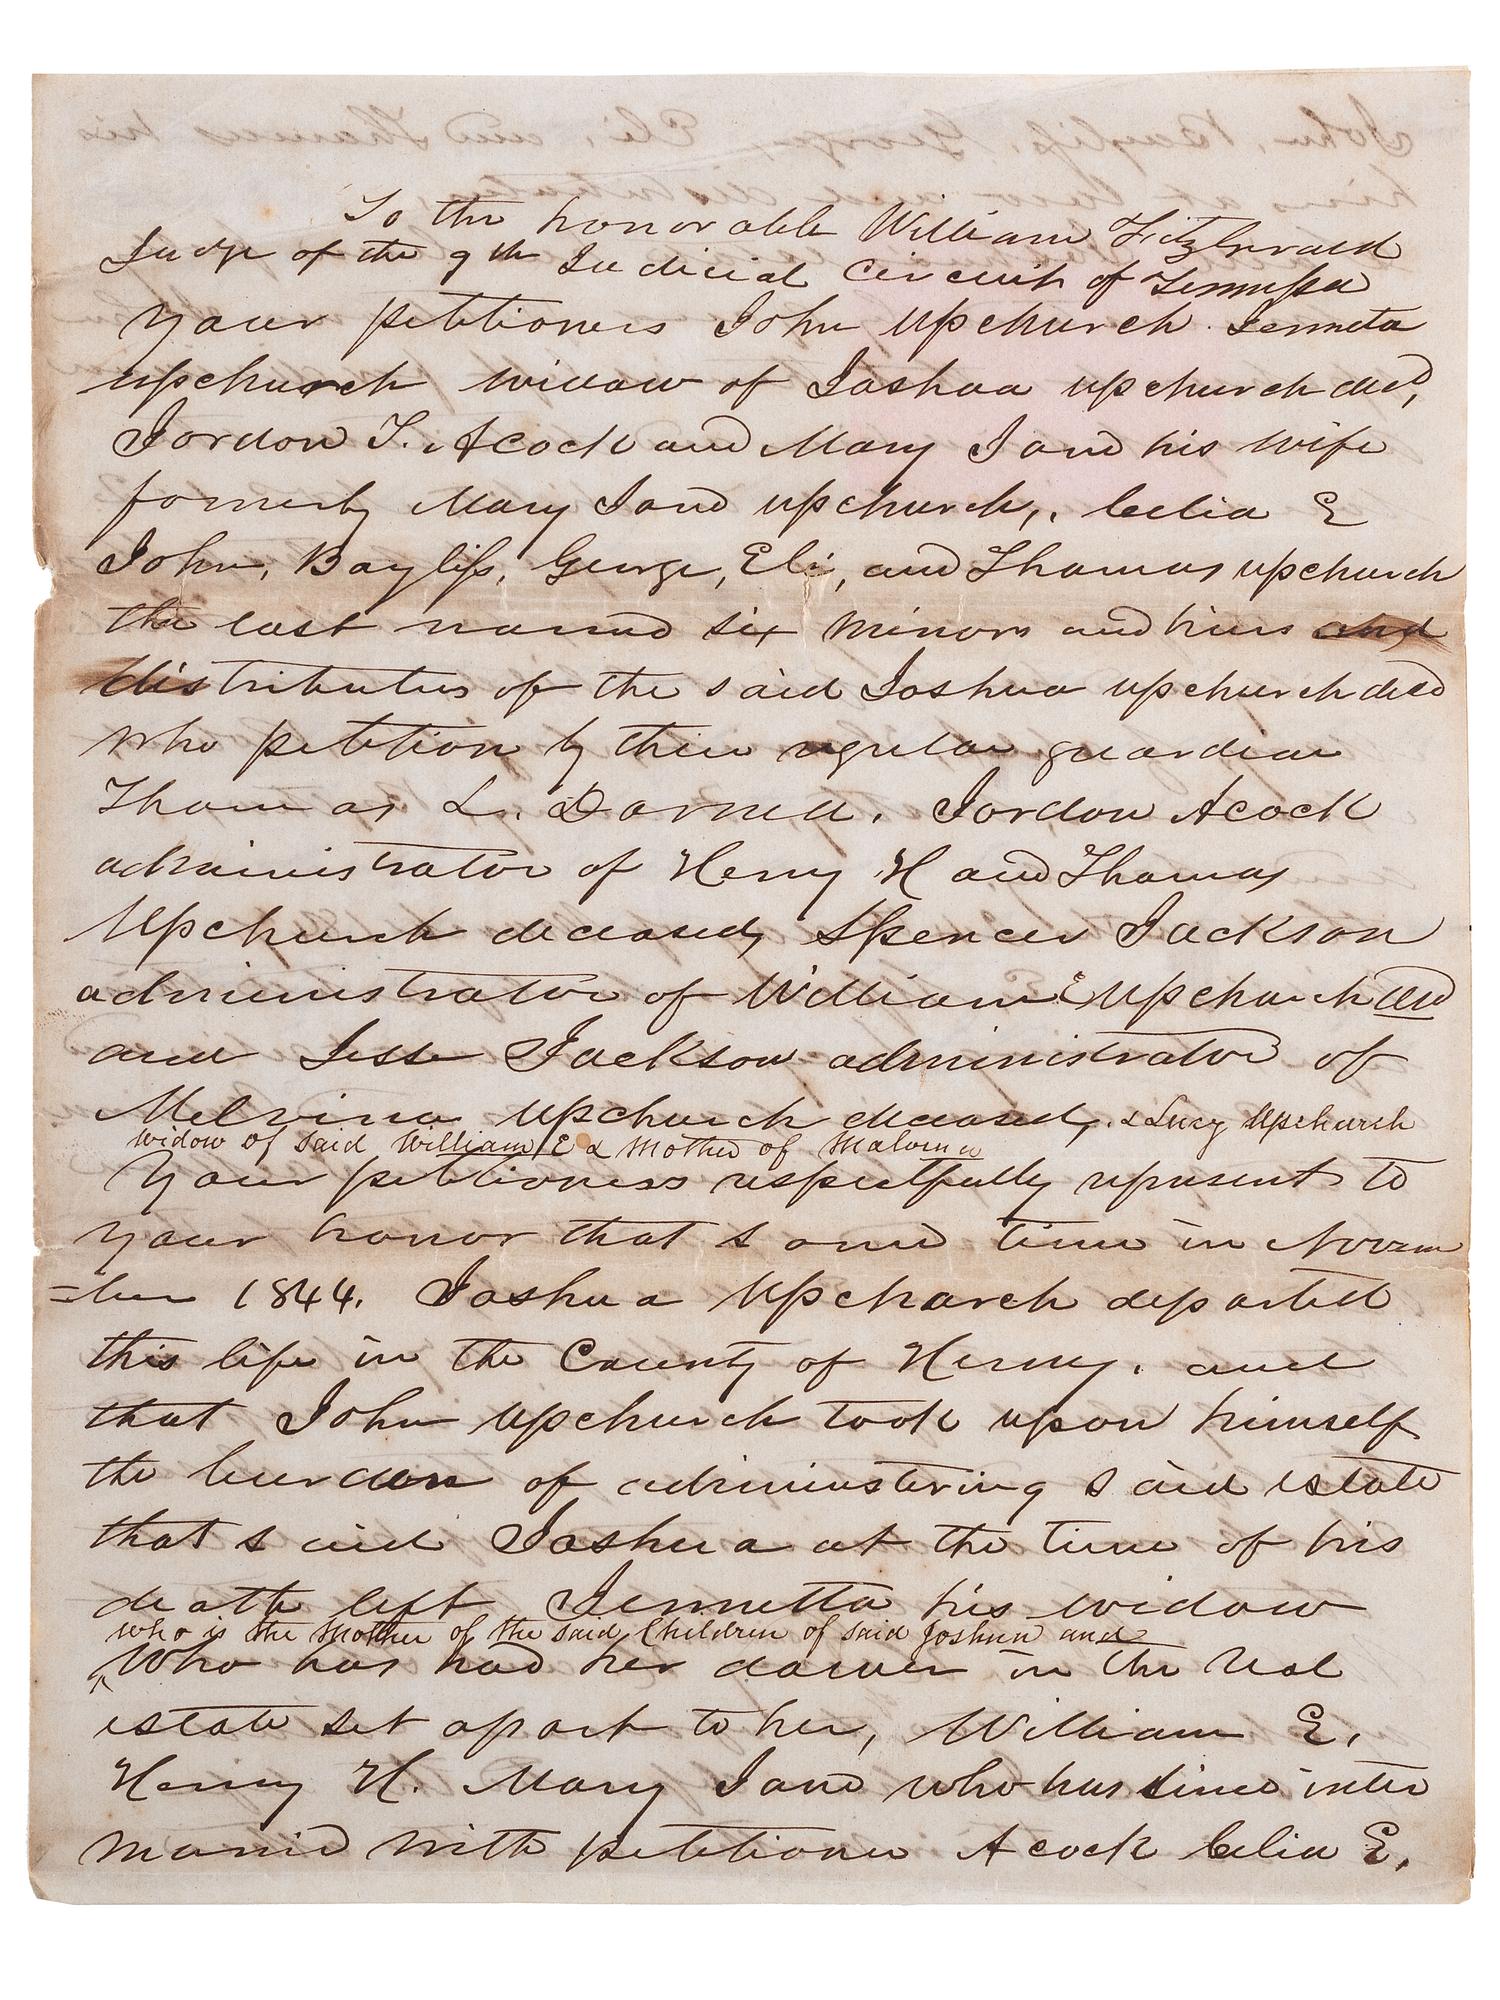 To the honorable William Fitzgerald
Judge of the 9th Judicial Circuit of Tennessee
Your petitioners John Upchurch. Jenneta
upchurch widow of Joshua upchurch decd,
Jordon T. Acock and Mary Jane his wife
formerly Mary Jane upchurch, Celia E
John, Bayliss, George, Eli, and Thomas upchurch
the last named six minors and heirs and
distributes of the said Joshua upchurch decd
who petition by their regular guardian
Thomas L. Darnell. Jordon Acock
administrator of Henry H and Thomas
Upchurch deceased, Spencer Jackson
administrator of William E Upchurch decd
and Jesse Jackson administrator of
Melvina Upchurch deceased, & Lucy Upchurch
widow of said William E & Mother of Malvina
Your petitioners respectfully represent to
your honor that some time in Novem
=ber 1844. Joshua Upchurch departed
this life in the County of Henry. and
that John Upchurch took upon himself
the burden of administering said estate
that said Joshua at the time of his
death left Jennetta his widow
who is the Mother of the said Children of said Joshua and
Who has had her dower in the real
estate set apart to her, William E.
Henry H. Mary Jane who has since inter
married with petitioner Acock Celia E.